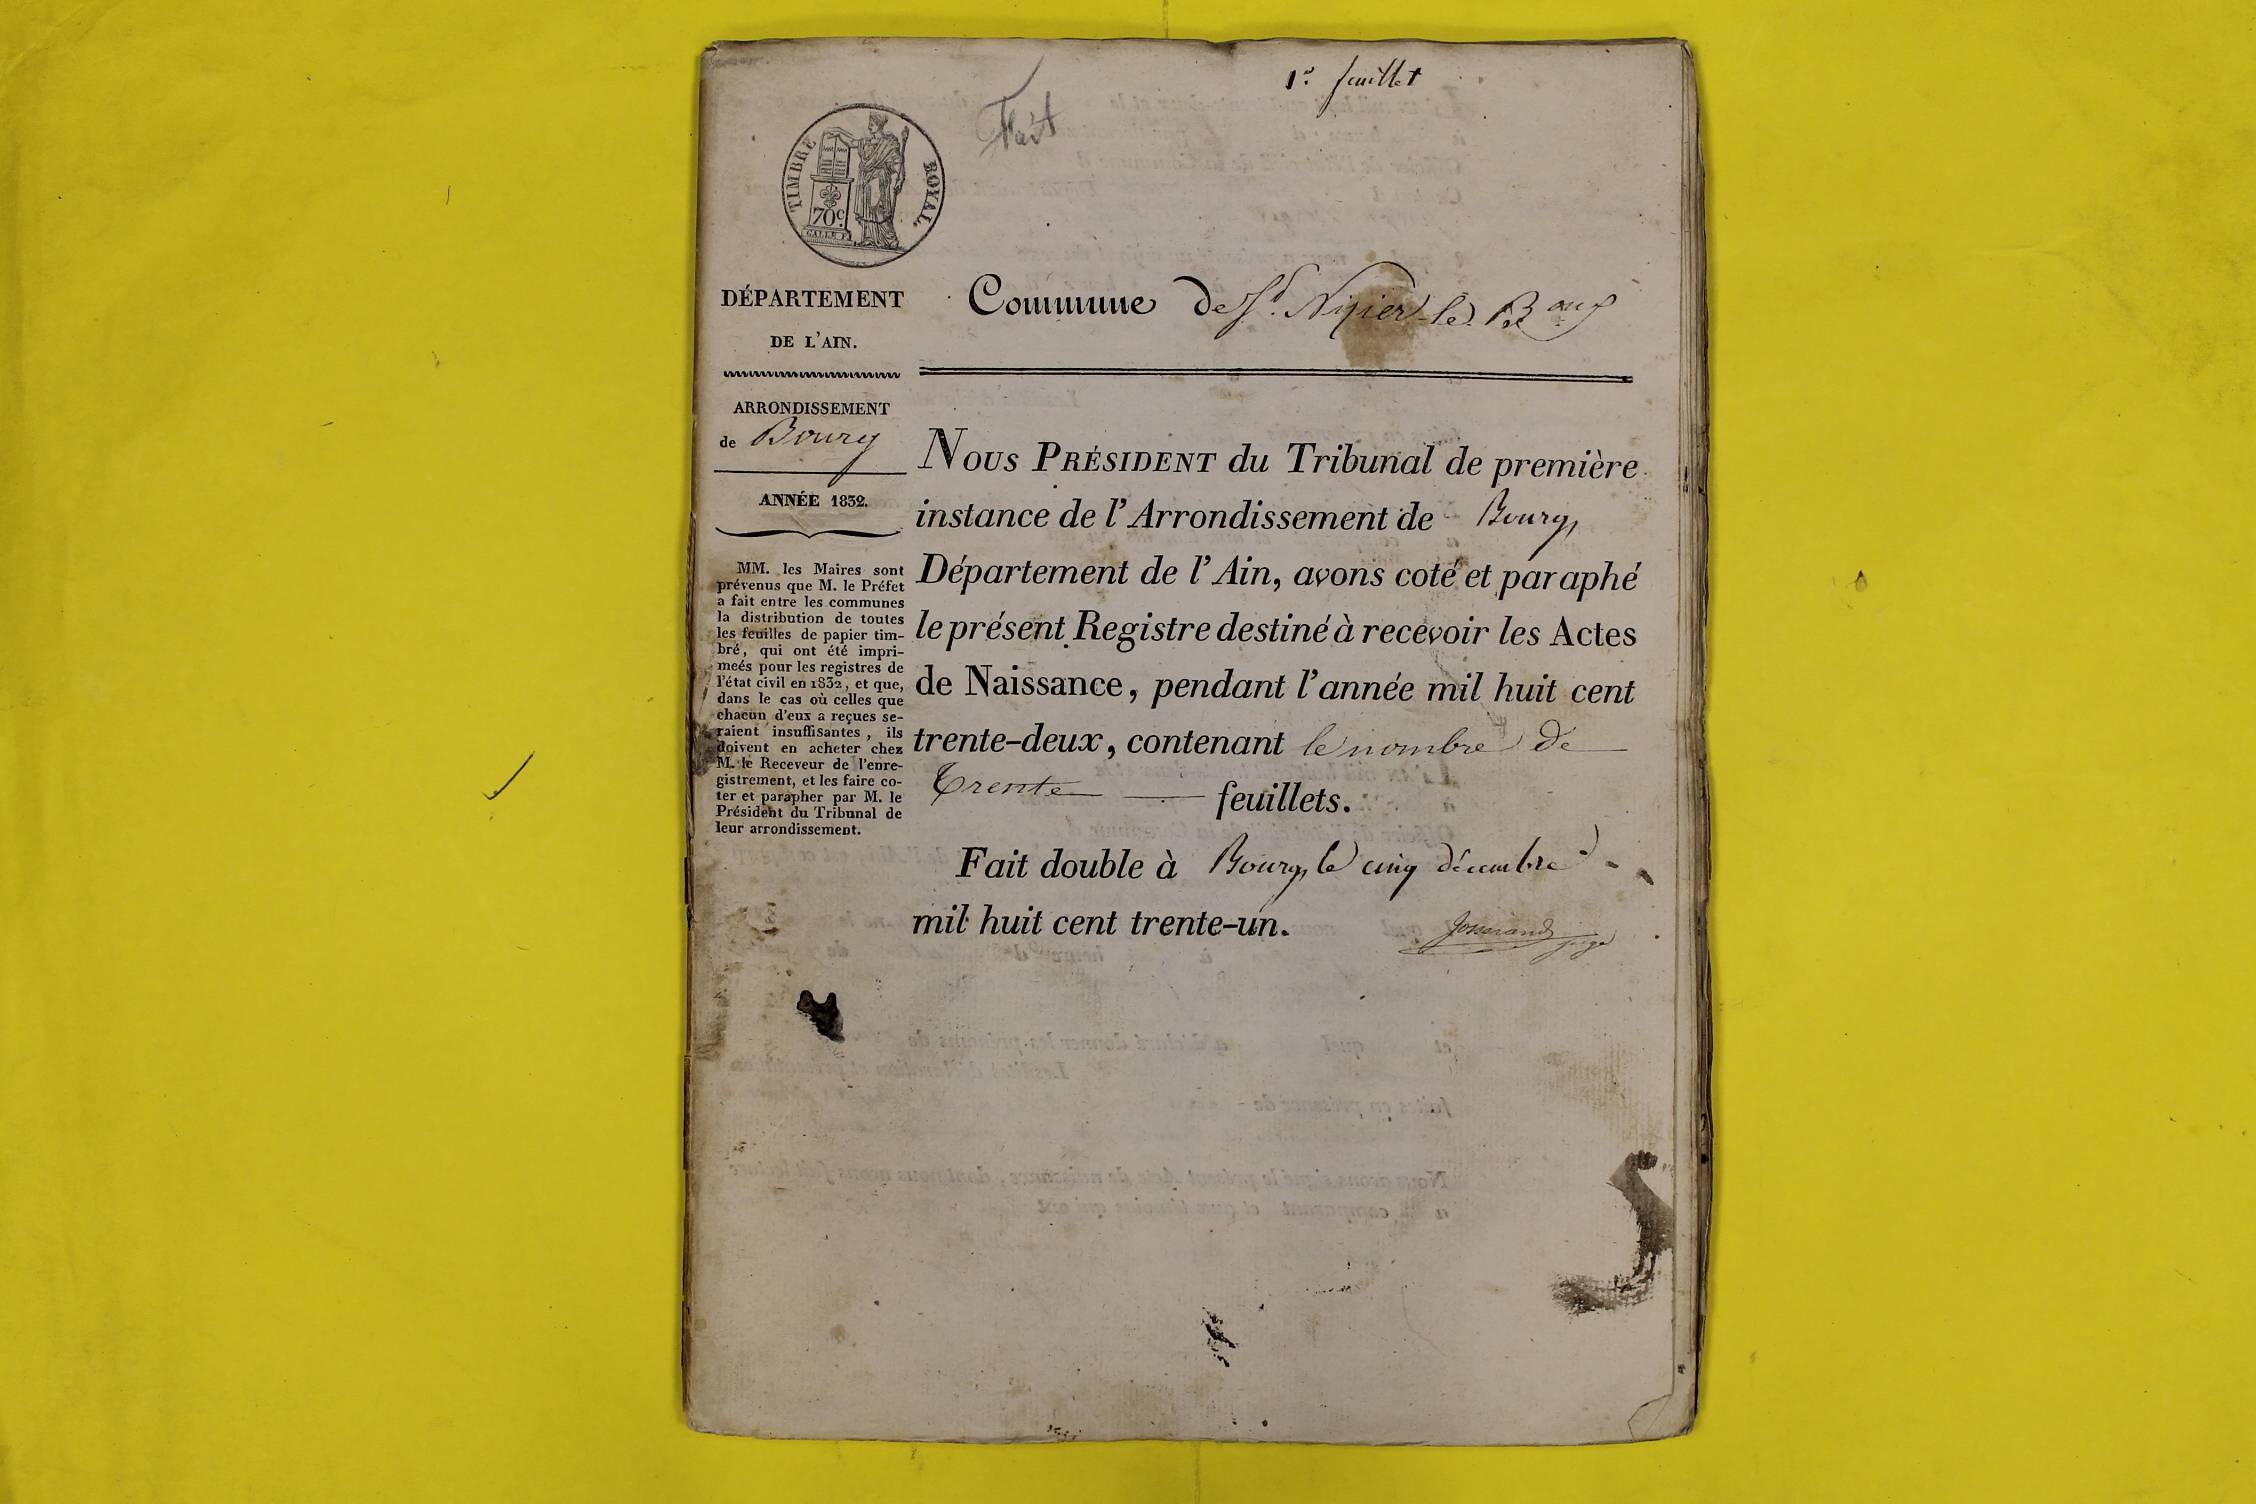 1er feuillet
Fait
TIMBRE ROYAL.
70c.
DÉPARTEMENT
DE L'AIN.
Commune de St. Nizier-le-Boux
ARRONDISSEMENT
de Bourg
ANNÉE 1832.
MM. les Maires sont
prévenus que M. le Préfet
a fait entre les communes
la distribution de toutes
les feuilles de papier tim-
bré, qui ont été impri-
meés pour les registres de
l'état civil en 1832, et que,
dans le cas où celles que
chacun d'eux a reçues se-
raient insuffisantes, ils
doivent en acheter chez
M. le Receveur de l'enre-
gistrement, et les faire co-
ter et parapher par M. le
Président du Tribunal de
leur arrondissement.
NOUS PRÉSIDENT du Tribunal de première
instance de l'Arrondissement de Bourg,
Département de l'Ain, avons coté et paraphé
le présent Registre destiné à recevoir les Actes
de Naissance, pendant l'année mil huit cent
trente-deux, contenant le nombre de
Trente feuillets.
Fait double à Bourg, le cinq décembre
mil huit cent trente-un.
Josserand
juge